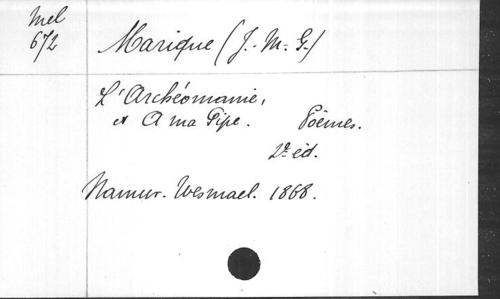 Mel
672
Marique (J.-M.-G.)
L'Archéomanie,
et A ma Pipe. Poèmes.
2e éd.
Namur. Wesmael. 1868.